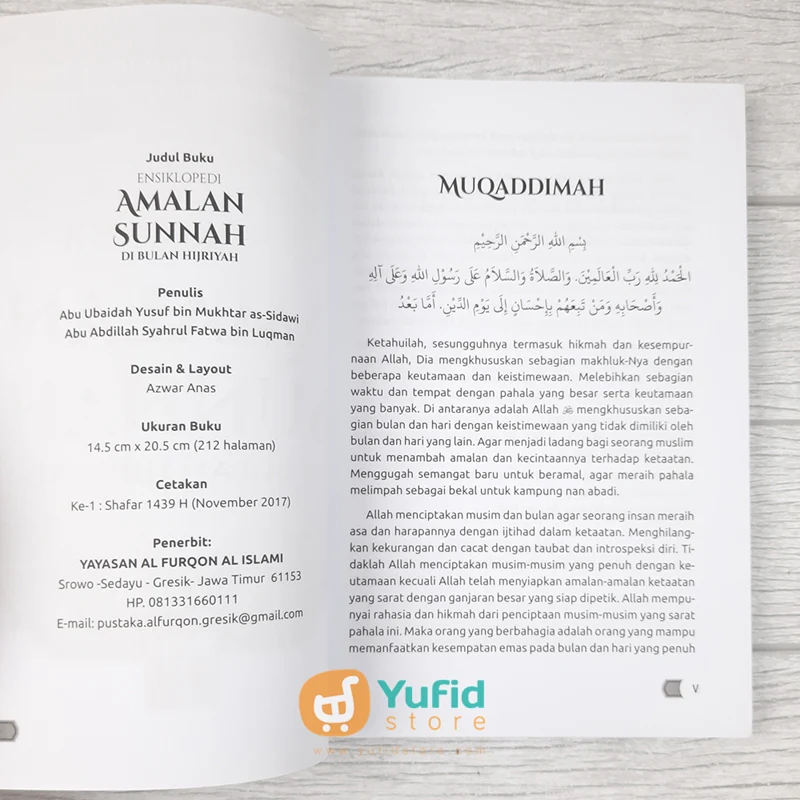 Judul Buku
ENSIKLOPEDI
AMALAN
SUNNAH
DI BULAN HIJRIYAH
Penulis
Abu Ubaidah Yusuf bin Mukhtar as-Sidawi
Abu Abdillah Syahrul Fatwa bin Luqman
Desain & Layout
Azwar Anas
Ukuran Buku
14.5 cm x 20.5 cm (212 halaman)
Cetakan
Ke-1 : Shafar 1439 H (November 2017)
Penerbit:
YAYASAN AL FURQON AL ISLAMI
Srowo -Sedayu - Gresik- Jawa Timur 61153
HP. 081331660111
E-mail: pustaka.alfurqon.gresik@gmail.com
MUQADDIMAH
بِسْمِ اللهِ الرَّحْمَنِ الرَّحِيْمِ
الْحَمْدُ لِلهِ رَبِّ الْعَالَمِيْنَ. وَالصَّلاَةُ وَالسَّلاَمُ عَلَى رَسُوْلِ اللهِ وَعَلَى آلِهِ
وَأَصْحَابِهِ وَمَنْ تَبِعَهُمْ بِإِحْسَانٍ إِلَى يَوْمِ الدِّيْنِ. أَمَّا بَعْدُ
Ketahuilah, sesungguhnya termasuk hikmah dan kesempur-
naan Allah, Dia mengkhususkan sebagian makhluk-Nya dengan
beberapa keutamaan dan keistimewaan. Melebihkan sebagian
waktu dan tempat dengan pahala yang besar serta keutamaan
yang banyak. Di antaranya adalah Allah mengkhususkan seba-
gian bulan dan hari dengan keistimewaan yang tidak dimiliki oleh
bulan dan hari yang lain. Agar menjadi ladang bagi seorang muslim
untuk menambah amalan dan kecintaannya terhadap ketaatan.
Menggugah semangat baru untuk beramal, agar meraih pahala
melimpah sebagai bekal untuk kampung nan abadi.
Allah menciptakan musim dan bulan agar seorang insan meraih
asa dan harapannya dengan ijtihad dalam ketaatan. Menghilang-
kan kekurangan dan cacat dengan taubat dan introspeksi diri. Ti-
daklah Allah menciptakan musim-musim yang penuh dengan ke-
utamaan kecuali Allah telah menyiapkan amalan-amalan ketaatan
yang sarat dengan ganjaran besar yang siap dipetik. Allah mempu-
nyai rahasia dan hikmah dari penciptaan musim-musim yang sarat
pahala ini. Maka orang yang berbahagia adalah orang yang mampu
memanfaatkan kesempatan emas pada bulan dan hari yang penuh
V
Yufid
store
www.yufidstore.com